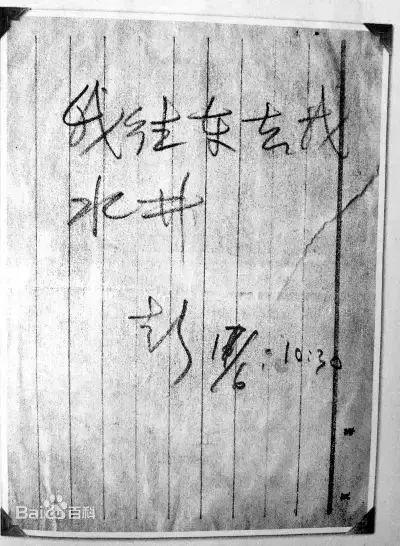 我往东去找
水井
彭 17/6: 10:30
Bai百科